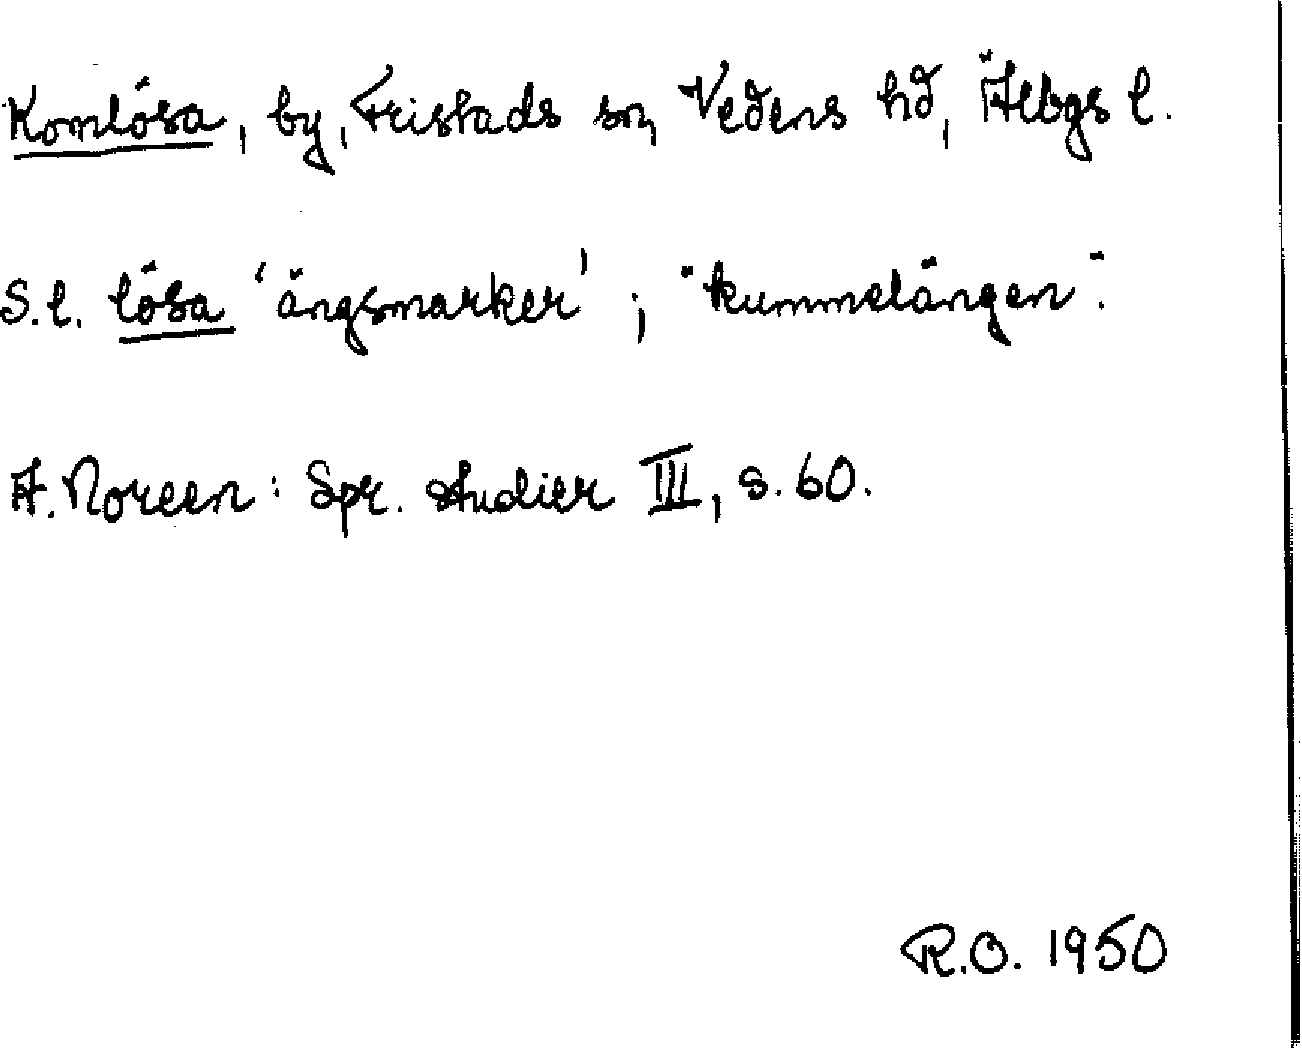 Komlösa, by, Fristads sn, Vedens hd, Älbgs l.
S.l. lösa 'ängsmarker'; "kummelängen".
A. Noreen: Spr. studier III, s. 60.
R.O. 1950